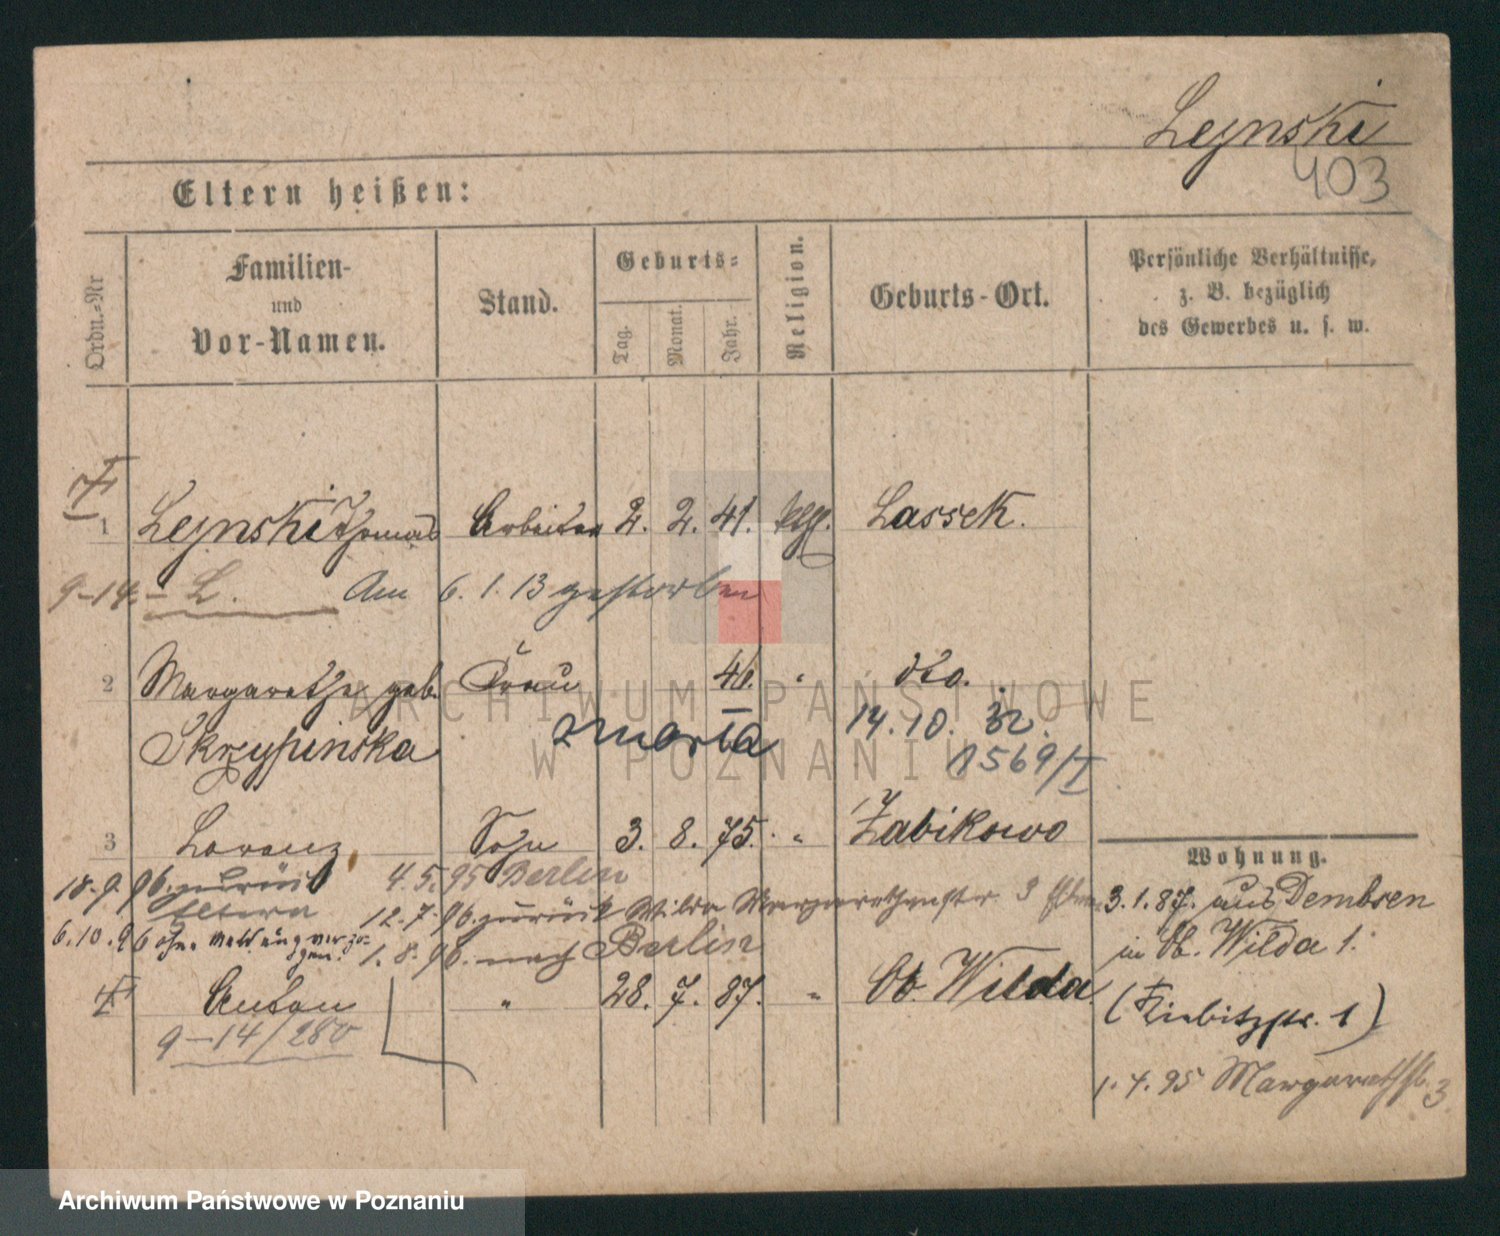 Lejnski
403
Eltern heißen:
Ordn.-Nr
Familien-
und
Vor-Namen.
Stand.
Geburts-
Tag.
Monat.
Jahr.
Religion.
Geburts-Ort.
Persönliche Verhältnisse,
z. B. bezüglich
des Gewerbes u. s. w.
1 Lejnski Thomas Arbeiter 2. 2. 41. kath. Lassek.
9-14.- L. Am 6. 1. 13 gestorben
2 Margarethe geb. Frau 46. " dto.
Skrzypinska Maria 14. 10. 32.
1569/I
3 Lorenz Sohn 3. 8. 75. " Żabikowo
Wohnung.
18.9.96. zurück 4.5.95 Berlin
Eltern 12.7.96. zurück Wilda Margarethenstr. 3
3.1.87. aus Dembsen
6.10.96 ohne Meldung verzogen. 1.8.96. nach Berlin
in Ob. Wilda 1.
Anton " 28. 7. 87. " Ob. Wilda
(Kiebitzstr. 1)
9-14/280
1.4.95 Margarethstr. 3
ARCHIWUM PAŃSTWOWE
W POZNANIU
Archiwum Państwowe w Poznaniu